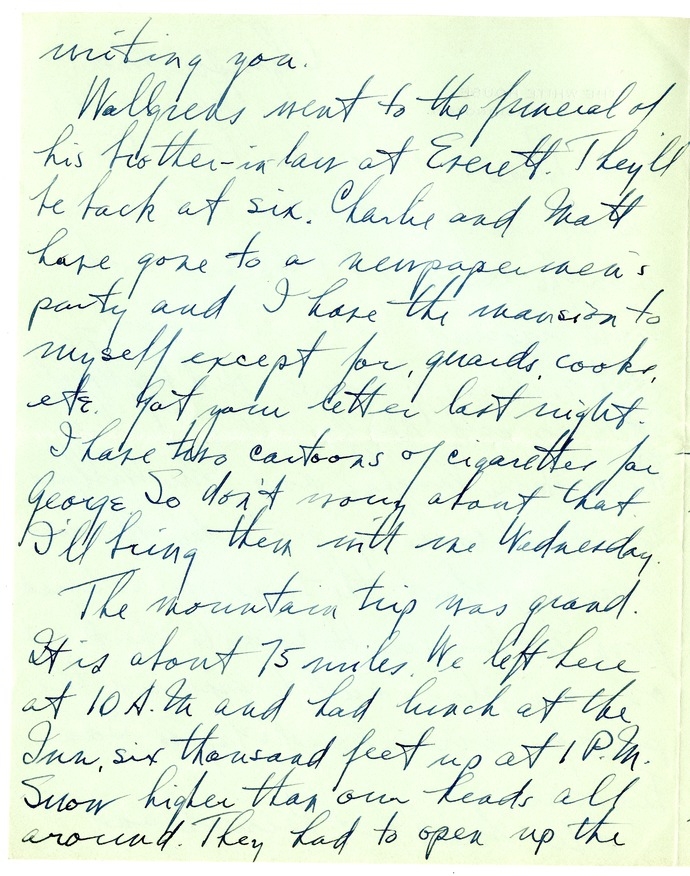 writing you.
Wallgrens went to the funeral of
his brother-in law at Everett. They'll
be back at six. Charlie and Matt
have gone to a newpapermen's
party and I have the mansion to
myself except for, guards, cooks,
etc. Got your letter last night.
I have two cartoons of cigarettes for
George. So don't worry about that.
I'll bring them with me Wednesday.
The mountain trip was grand.
It is about 75 miles. We left here
at 10 A.M and had lunch at the
Inn, six thousand feet up at 1 P.M.
Snow higher than our heads all
around. They had to open up the